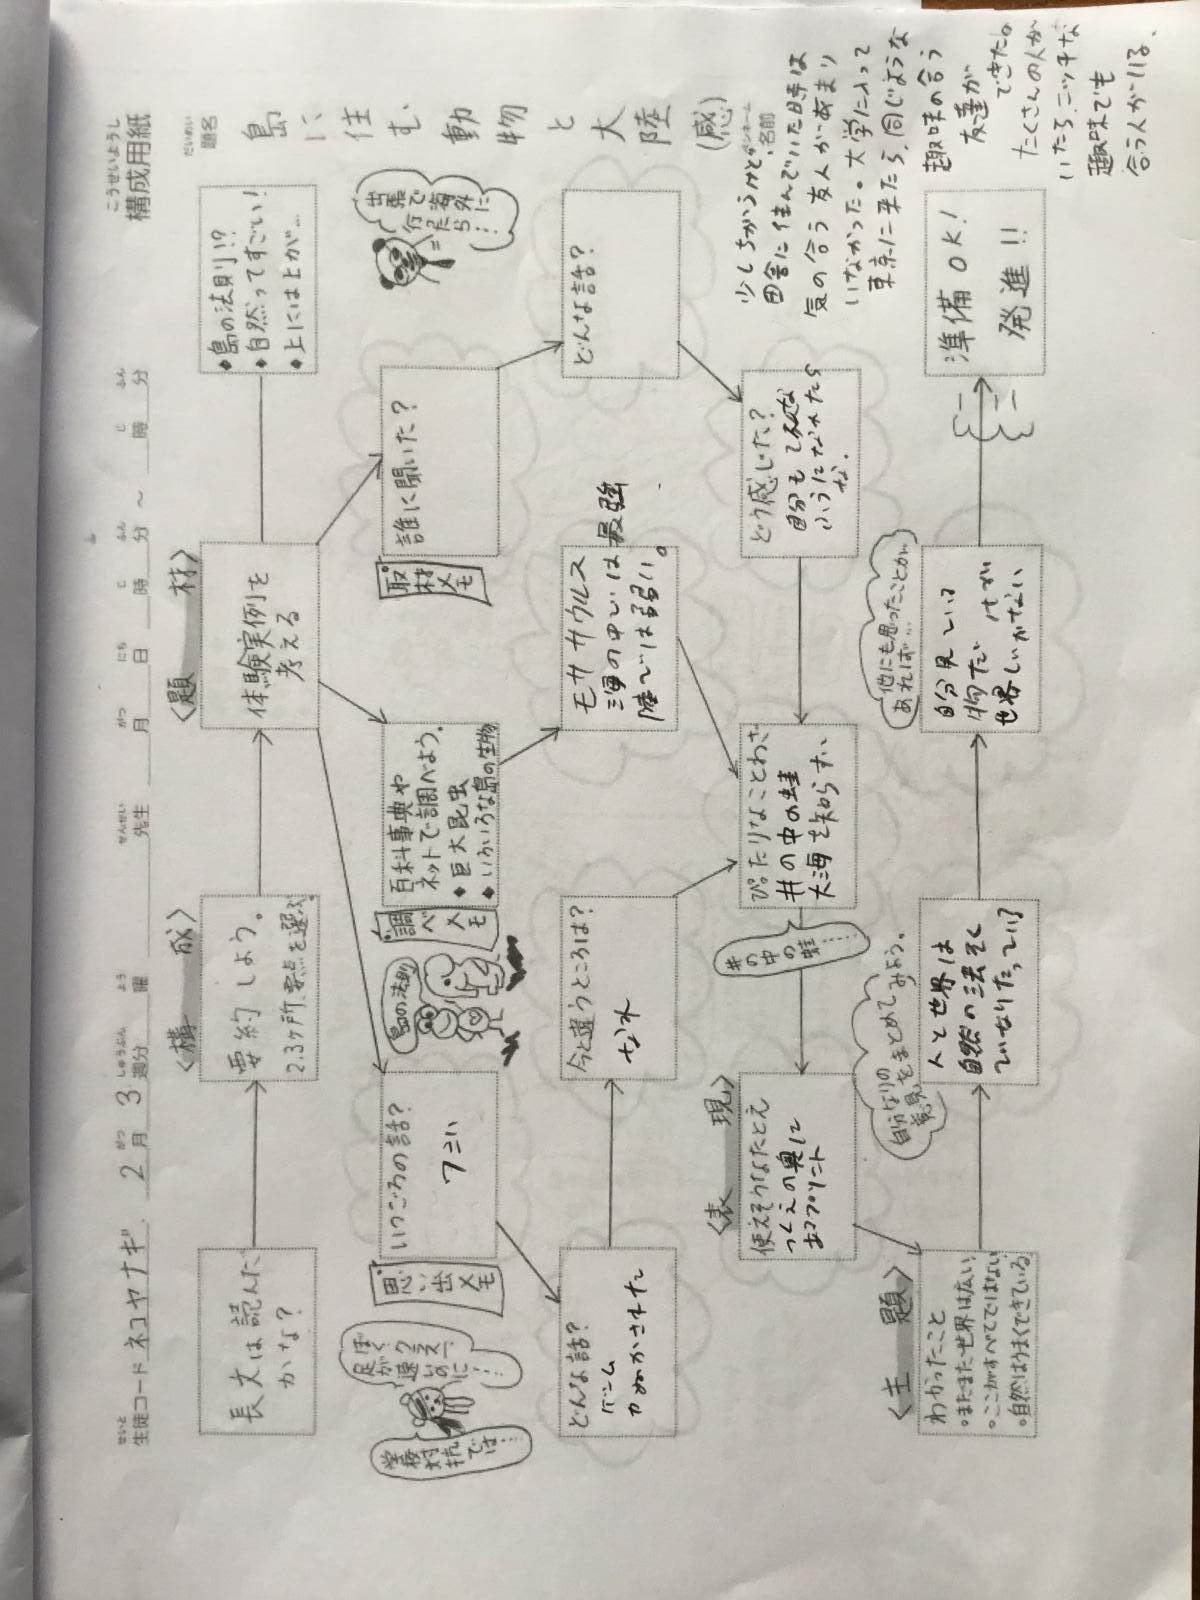 こうせいようし
構成用紙
せいと
生徒コード ネコヤナギ 2月 3週分 曜 先生 月 日 時 分 ～ 時 分
がつ しゅうぶん よう せんせい がつ にち じ ふん じ ふん
だいめい
題名
島に住む動物と大陸(感)
ペンネーム
名前
〈構 成〉
〈題 材〉
長文は読んだ
かな？
要約しよう。
2.3ヶ所、要点を選ぶ。
体験実例を
考える
◆島の法則!?
◆自然ってすごい!
◆上には上が…
学校対抗では……
ぼく、クラス一足が速いのに……
思い出メモ
いつごろの話？
7こい
島の法則
調べメモ
百科事典や
ネットで調べよう。
◆巨大昆虫
◆いろいろな島の生物
取材メモ
誰に聞いた？
出張で海外に行ったら……
どんな話？
ゲーム
今と違うところは？
モササウルス
海の中では最強
陸では弱い。
どんな話？
〈表 現〉
使えそうなたとえ
つくえの奥に
プリント
井の中の蛙……
ぴったりなことわざ
井の中の蛙
大海を知らずい
どう感じた？
自分も
ふうになれたら
な.
少しちがうけど、
田舎に住んでいた時は
気の合う友人があまり
いなかった。大学に入って
東京に来たら、同じような
趣味の合う
友達が
できた。
たくさんの人が
いたらニッチな
趣味でも
合う人がいる、
〈主 題〉
わかったこと
○まだまだ世界は広い
○ここがすべてではない
○自然はうまくできている
自分なりの意見をまとめてみよう。
人と世界は
自然の法そく
でなりたっている
他にも思ったことがあれば……
自分見ている
物だけが
世界しいがない
準備OK!
発進!!